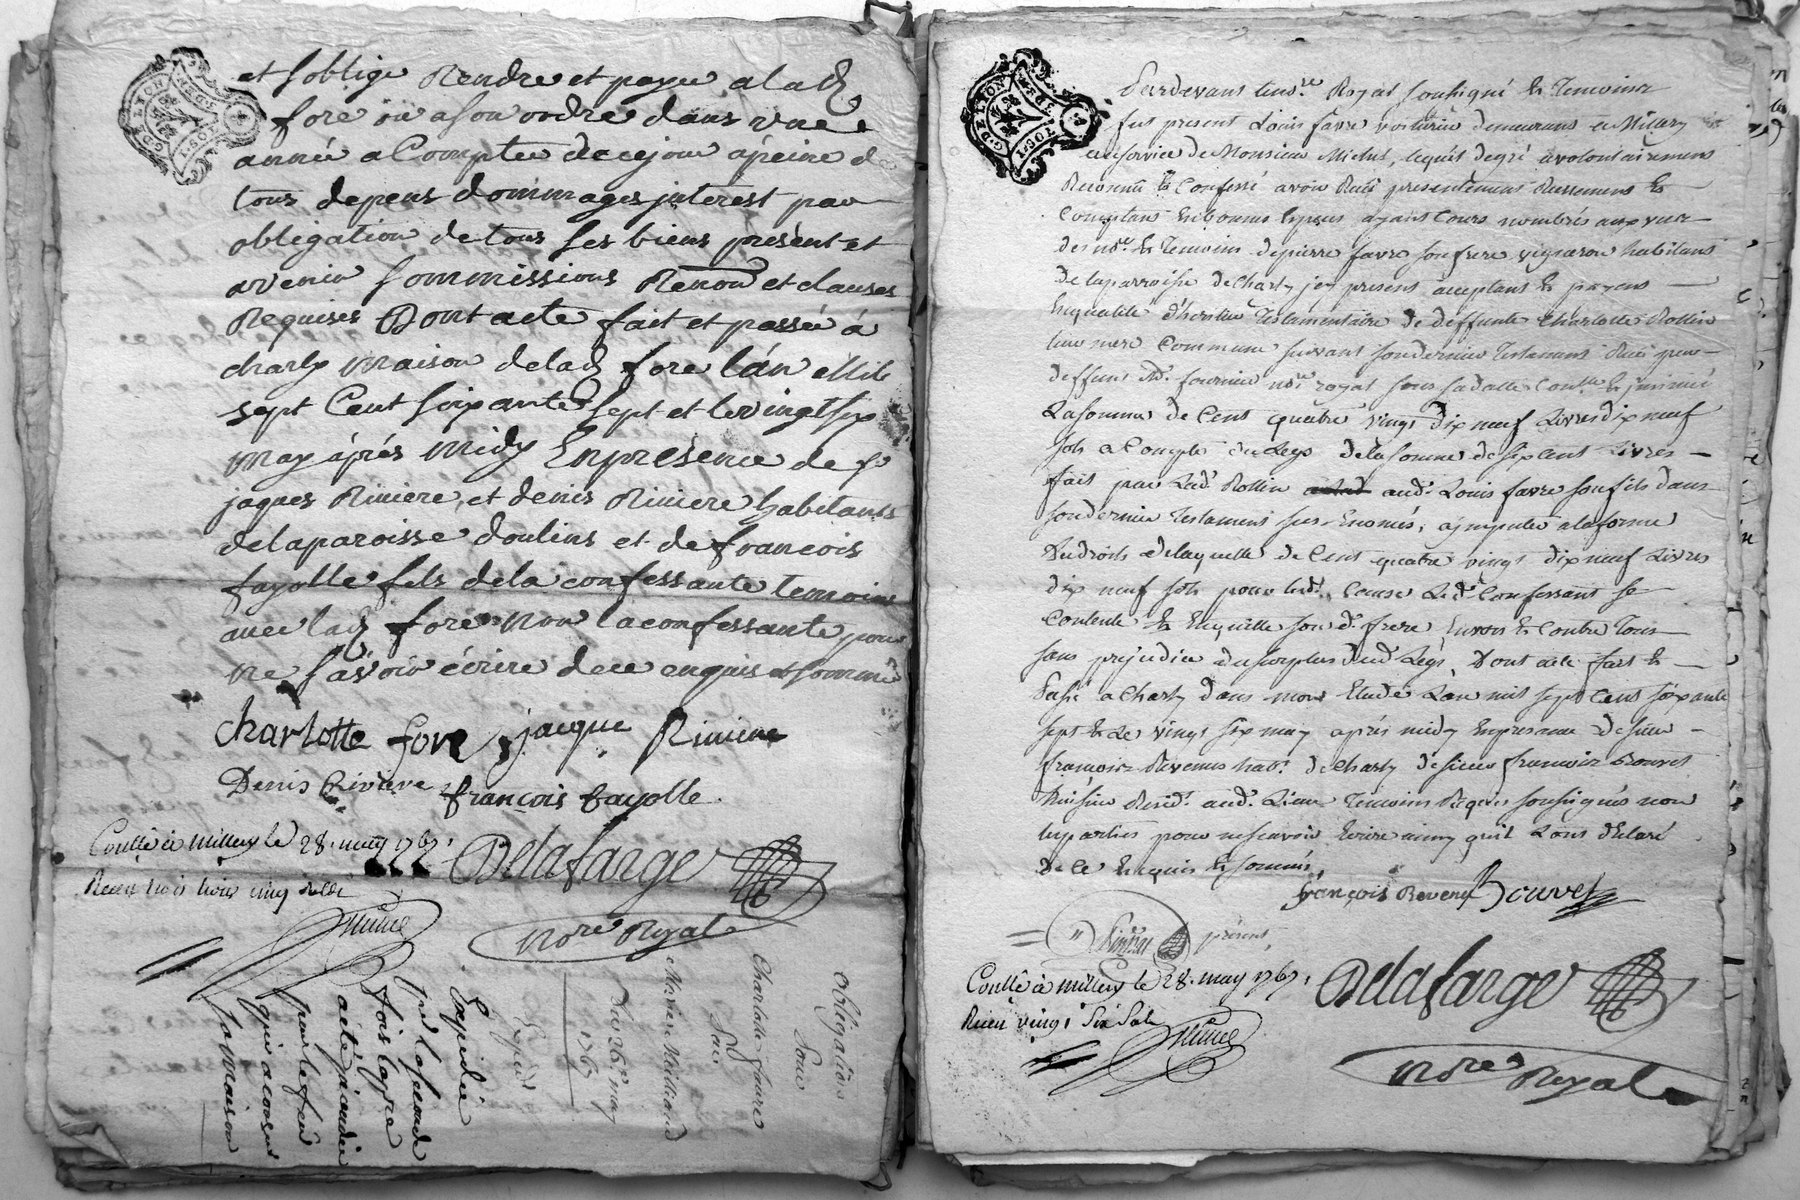 et soblige Rendre et payer a lad.
fore ou a son ordre dans une
année a Compter de ce jour a peine de
tous depens dommages interest par
obligation de tous ses biens present et
avenir sommissions Renon et clauses
Requises Dont acte fait et passée á
charly maison de lad. fore lán Mil
sept Cent soixante sept et le vingt six
may áprés midy En présence de sr
jaques Riviere, et denis Riviere habitants
de la paroisse doulins et de francois
fayolle fils de la confessante temoins
avec lad. fore non la confessante pour
ne sávoir écrire de ce enquis et sommé
charlotte fore jacque Riviere
Denis Riviere françois fayolle
Conllé à millery le 28. may 1767.
Delafarge
Receu trois livres cinq sols
nore Royal
Obligaõn
Pour
Charlotte faure
Sur
Marie Milliand
Du 26e may
1767
Expediée
une seconde
fois la pre
acte
par le feu
qui a
sa maison
G. DE LYON
Pardevant le nore Royal soussigné & Temoins
fut present Louis favre voiturier demeurant a Millery
au service de Monsieur Michel, lequel de gré a volontairement
Reconnu & Confessé avoir Receu presentement Reellement &
Comptant en bonnes especes ayant Cours nombrés aux yeux
des nore & Temoins de pierre favre son frere vigneron habitant
de la parroisse de Charly jcy present acceptant & payant
En qualité d'heritier Testamentaire de deffunte Charlotte Rollin
leur mere Commune suivant son dernier Testament Receu par
deffunt Me. fournier nore royal sous sa datte Conllé &
La somme de Cent quatre vingt dix neuf Livres dix neuf
sols a Compte du Legs de la somme de six cent Livres
fait par Lad. Rollin aud. Louis favre son fils dans
son dernier Testament sus Enoncé,
de laquelle de Cent quatre vingt dix neuf Livres
dix neuf sols pour led. Led. Confessant se
Contente & En quitte son d. frere Envers & Contre Tous
sans prejudice du surplus dud. Legs, Dont acte fait &
Passé a Charly dans mon Etude L'an mil sept Cent soixante
sept & Le vingt six may aprés midy En presence de sieur
françois Revenus habt. de Charly de sieur francois Bouvet
Resid. aud. Lieu Temoins Requis soussignés non
les parties pour ne scavoir Ecrire ainsy qu'il L'ont déclaré
de Ce Enquis & sommés
françois Reven Bouvet
présent
Conllé à millery le 28. may 1767.
Delafarge
Receu vingt six sols
nore Royal
G. DE LYON